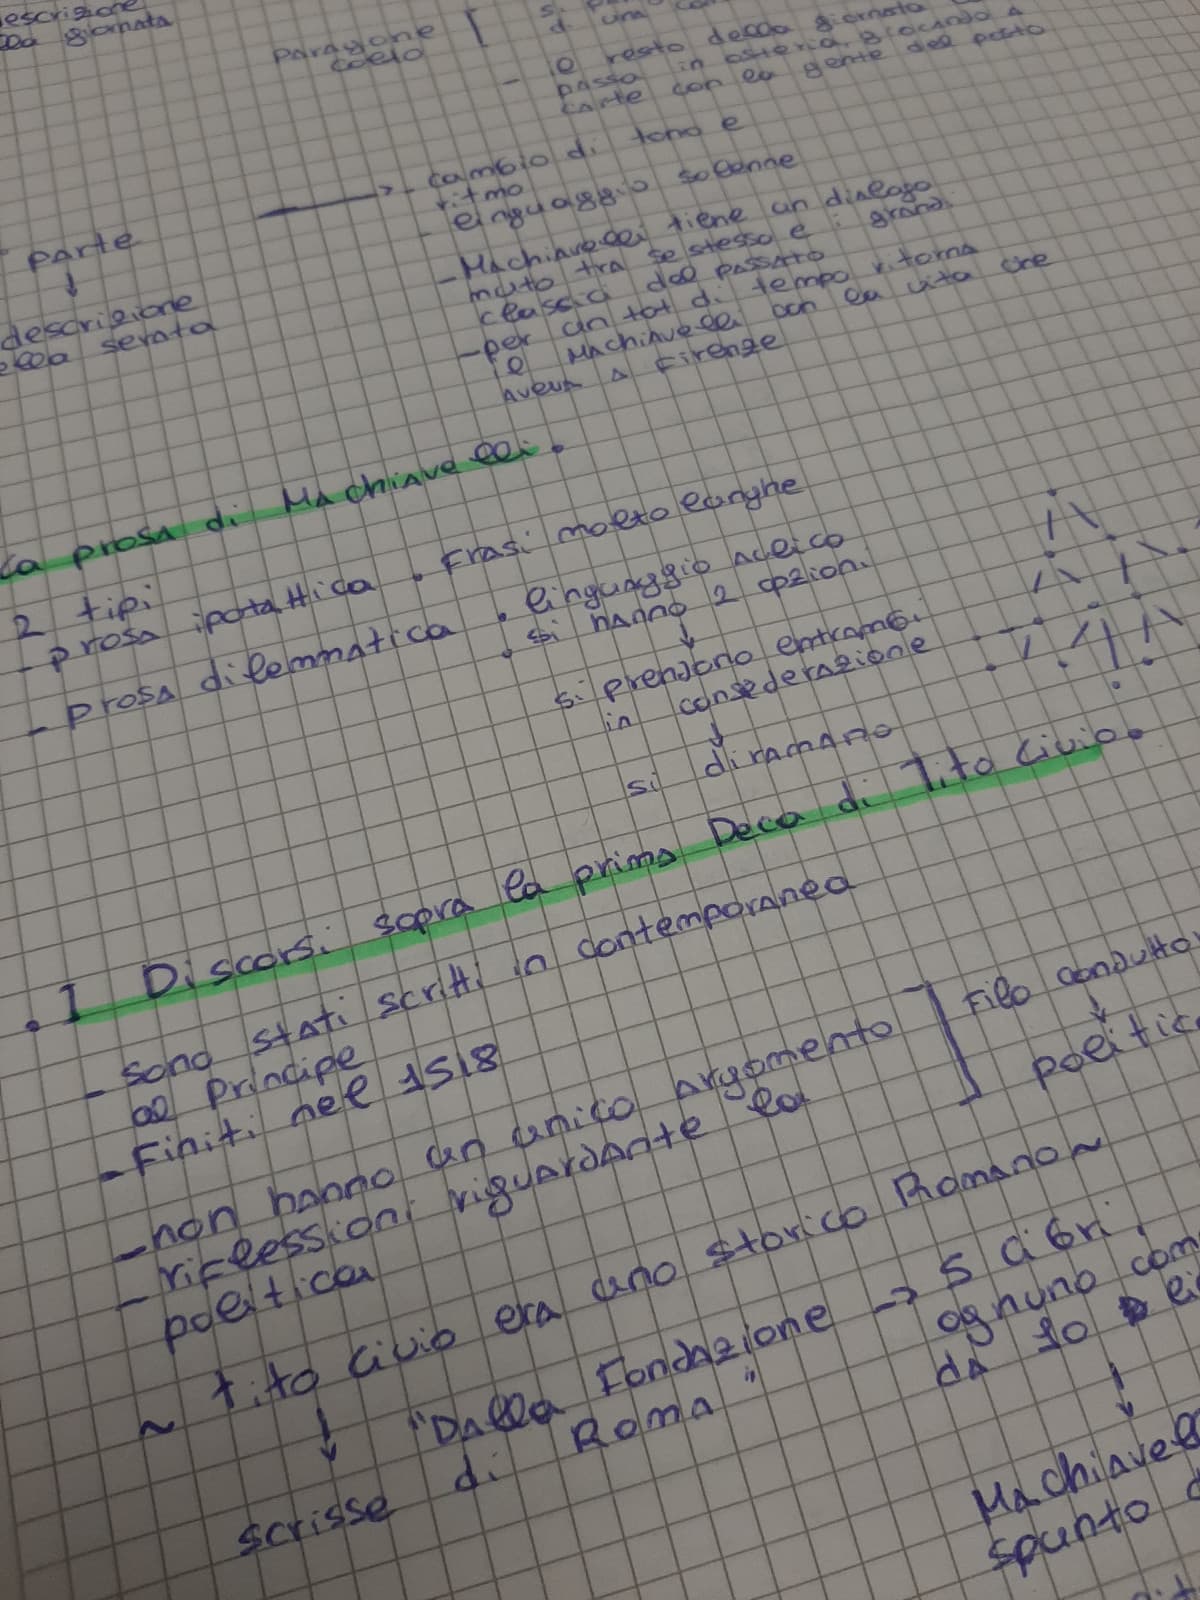 descrizione
giornata
Paragone
- il resto della giornata
passa in osteria, giocando a
carte con la gente del posto
parte
↓
descrizione
della serata
→ - cambio di tono e
ritmo
- linguaggio solenne
- Machiavelli tiene un dialogo
muto tra se stesso e i grandi
classici del passato
- per un tot di tempo ritorna
il Machiavelli con la vita che
aveva a Firenze
La prosa di Machiavelli.
2 tipi
- prosa ipotattica . Frasi molto lunghe
- prosa dilemmatica . linguaggio aulico
. si hanno 2 opzioni
↓
si prendono entrambi
in considerazione
↓
si diramano
. I Discorsi sopra la prima Deca di Tito Livio.
- sono stati scritti in contemporanea
al Principe
- Finiti nel 1518
- non hanno un unico argomento
- riflessioni riguardante la
politica
] Filo
↓
~ tito Livio era uno storico Romano ~
↓
scrisse
"Dalla Fondazione
di Roma"
→ 5 libri,
ognuno
da 10
↓
spunto